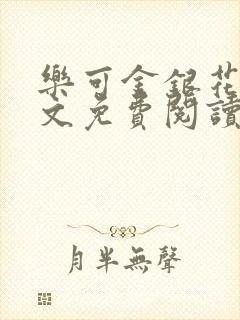 樂可金銀花
文免費閱讀
月半無聲